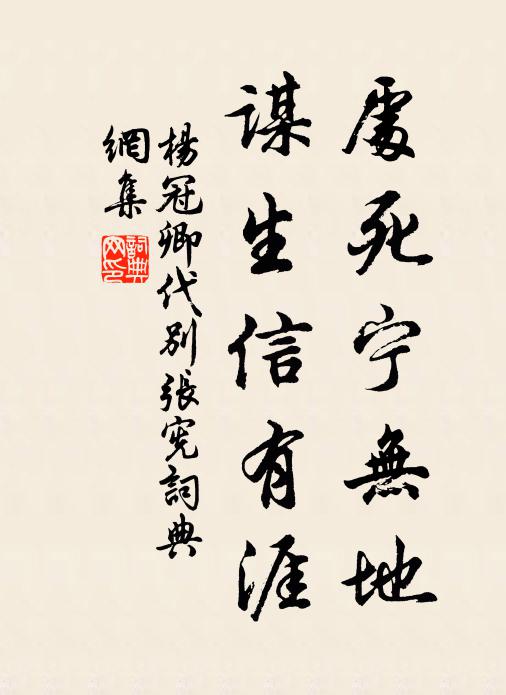 處死宁無地
謀生信有涯
楊冠卿代别張憲詞典
網集
詞典
网印